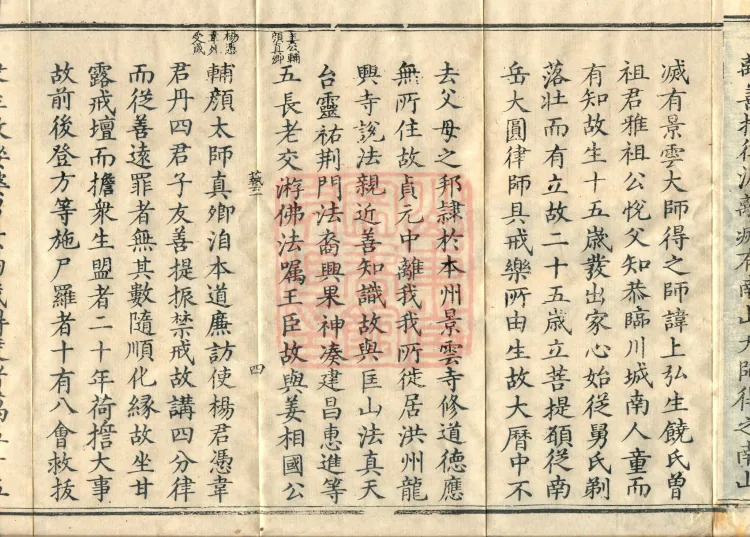 南山大師得之南山
滅有景雲大師得之師諱上弘生饒氏曾
祖君雅祖公悅父知恭臨川城南人童而
有知故生十五歲發出家心始從舅氏剃
落壯而有立故二十五歲立菩提願從南
岳大圓律師具戒樂所由生故大曆中不
去父母之邦隷於本州景雲寺修道德應
無所住故貞元中離我我所徙居洪州龍
興寺說法親近善知識故與匡山法真天
台靈祐荆門法裔興果神湊建昌惠進等
姜公輔
顔真卿
五長老交游佛法嘱王臣故與姜相國公
藝一
四
楊憑
受戒
輔顔太師真卿洎本道廉訪使楊君憑韋
君丹四君子友善提振禁戒故講四分律
而從善遠罪者無其數隨順化縁故坐甘
露戒壇而擔衆生盟者二十年荷擔大事
故前後登方等施尸羅者十有八會救拔